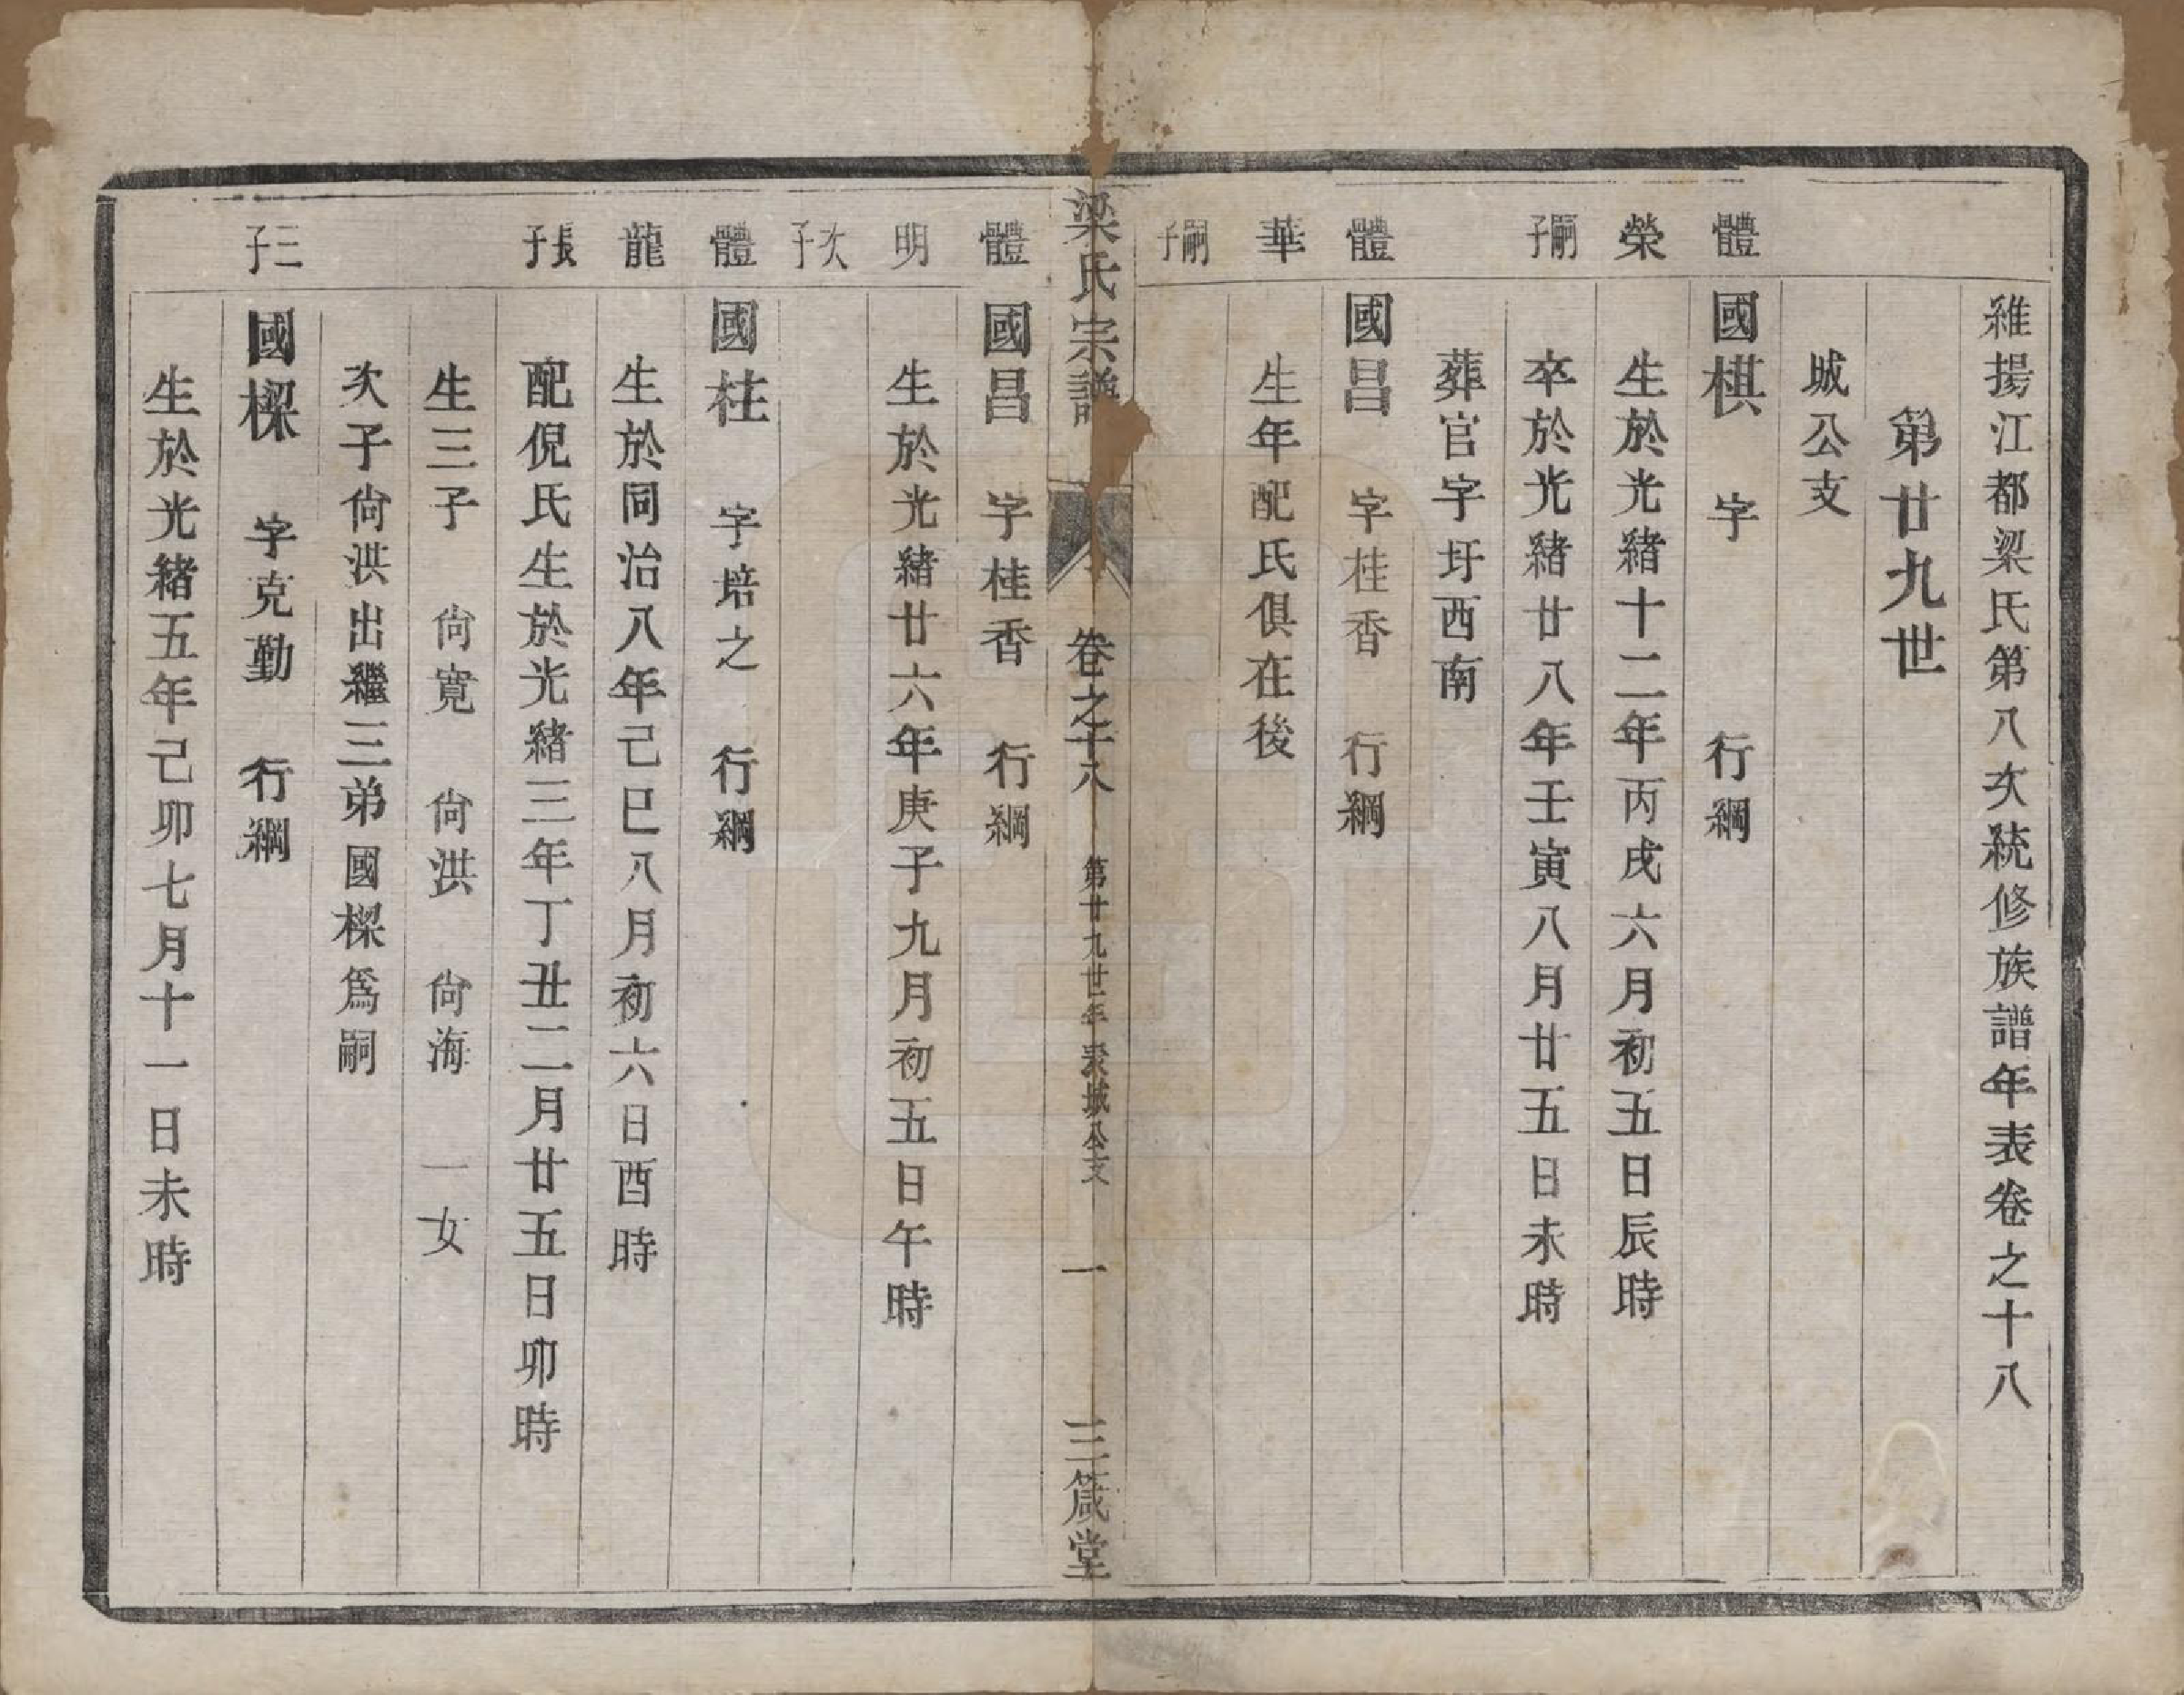 維揚江都梁氏第八次統修族譜年表卷之十八
第廿九世
城公支
體榮嗣子
國棋 字 行綱
生於光緒十二年丙戌六月初五日辰時
卒於光緒廿八年壬寅八月廿五日未時
葬官字圩西南
體華嗣子
國昌 字桂香 行綱
生年配氏俱在後
梁氏宗譜 卷之十八 第廿九世年表城公支 一 三箴堂
體明次子
國昌 字桂香 行綱
生於光緒廿六年庚子九月初五日午時
體龍長子
國柱 字培之 行綱
生於同治八年己巳八月初六日酉時
配倪氏生於光緒三年丁丑二月廿五日卯時
生三子 尙寬 尙洪 尙海 一女
次子尙洪出繼三弟國樑爲嗣
三子
國樑 字克勤 行綱
生於光緒五年己卯七月十一日未時